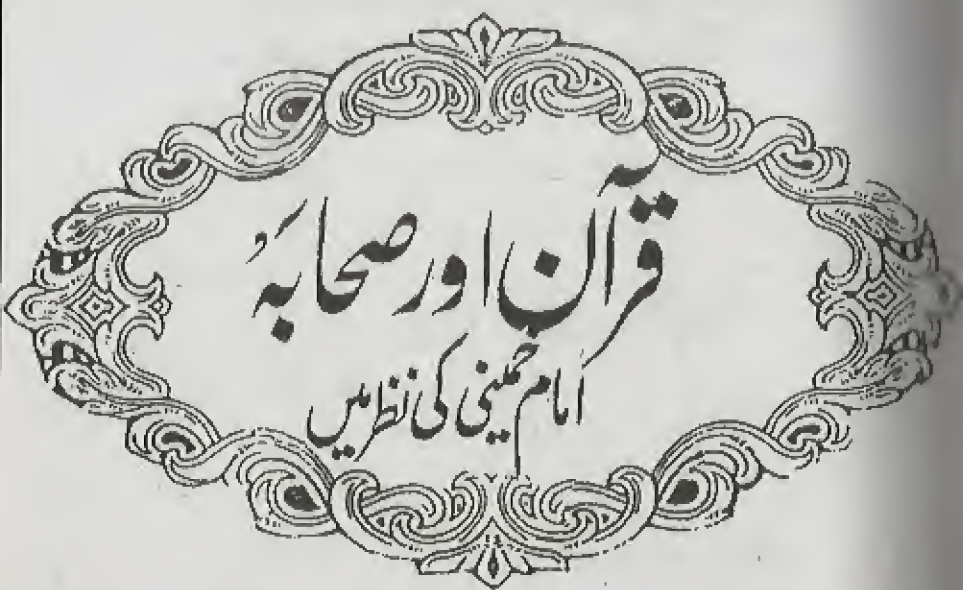 قرآن اور صحابہؓ
امام خمینی کی نظر میں